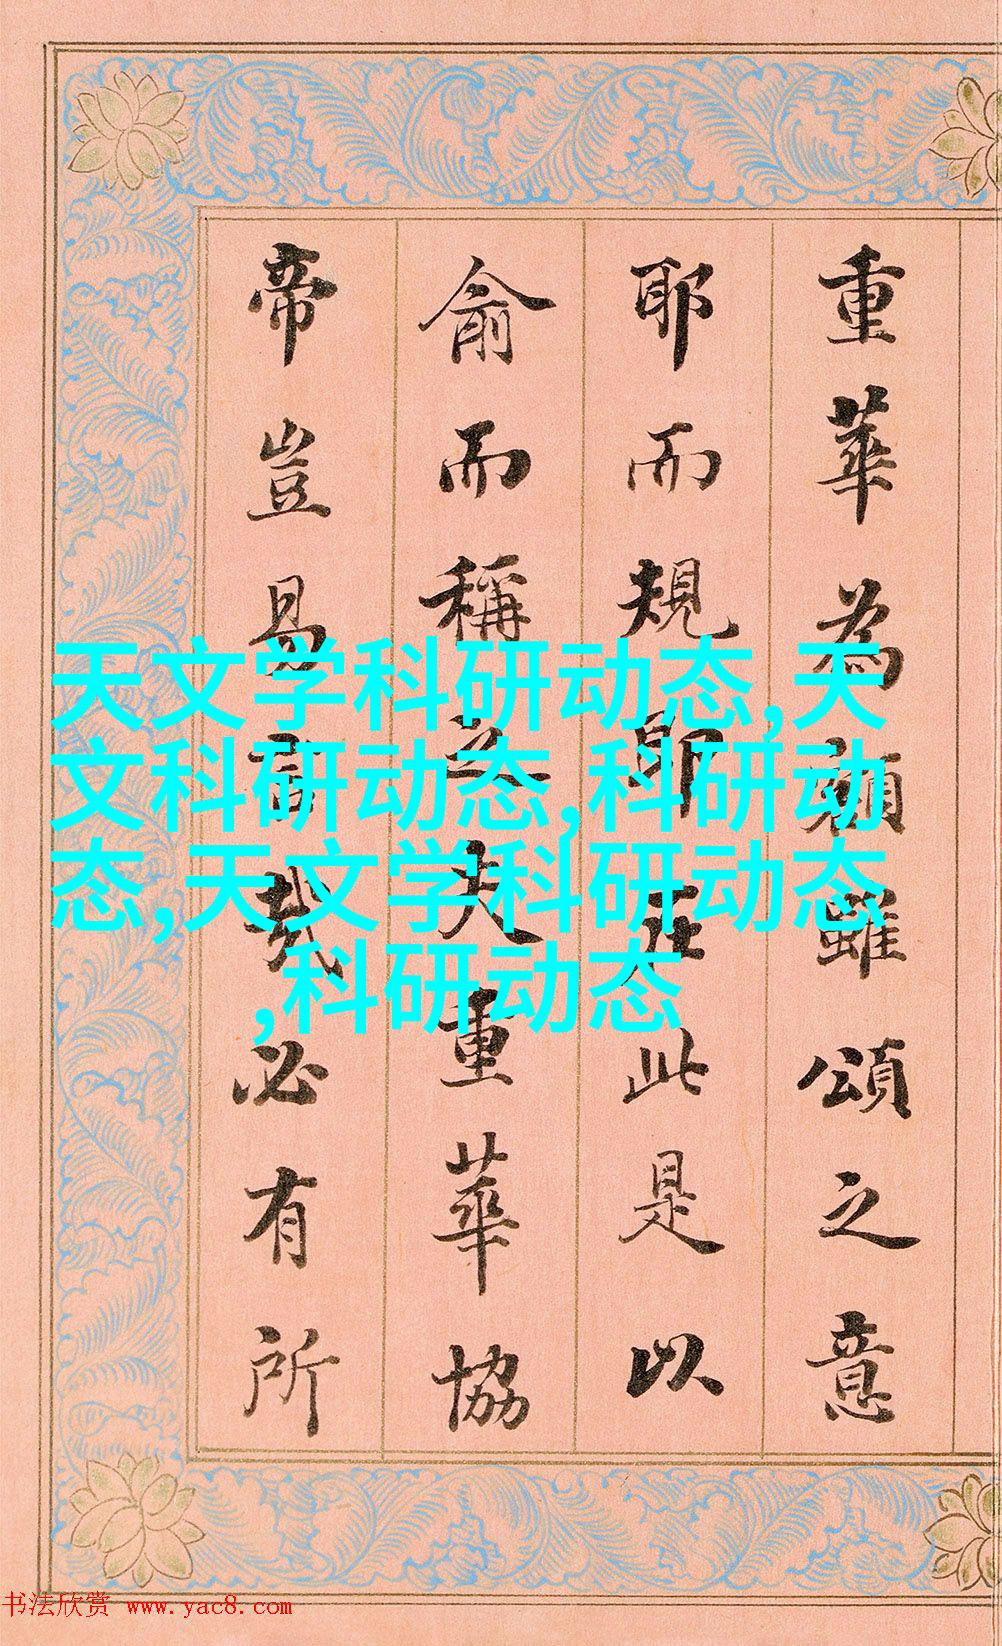 重華為額雖頌之意
耶而規即在此是以
俞而稱之夫重華協
帝豈易言哉必有所
天文学科研动态,天
文科研动态,科研动
态,天文学科研动态
,科研动态
书法欣赏 www.yac8.com